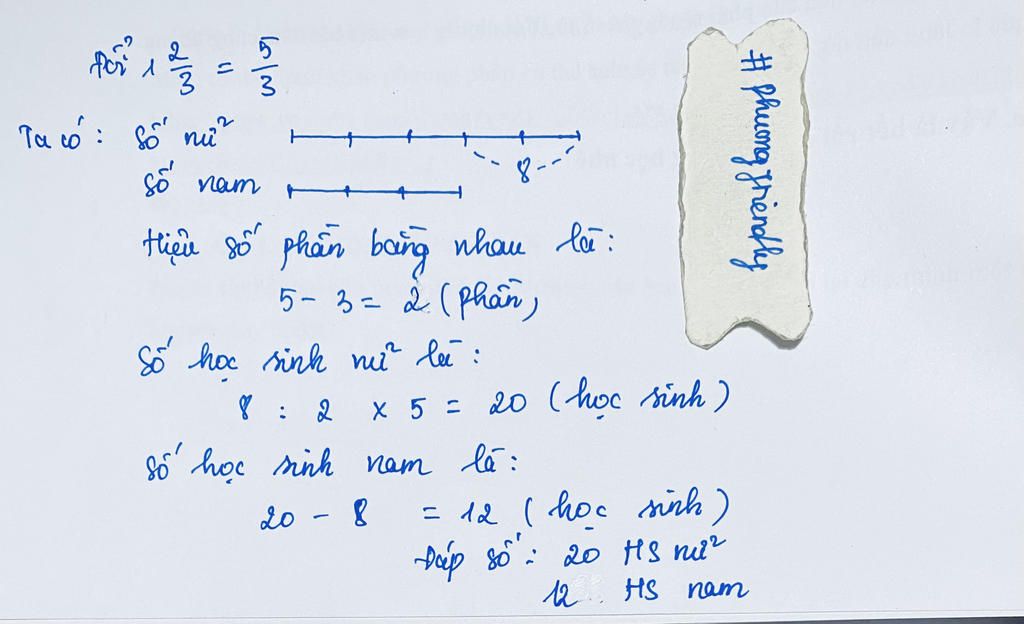 Đổi 1 2/3 = 5/3
Ta có: số nữ
8
số nam
Hiệu số phần bằng nhau là:
5 - 3 = 2 (phần)
Số học sinh nữ là:
8 : 2 x 5 = 20 (học sinh)
Số học sinh nam là:
20 - 8 = 12 (học sinh)
Đáp số: 20 HS nữ
12 HS nam
#phuongfriendly